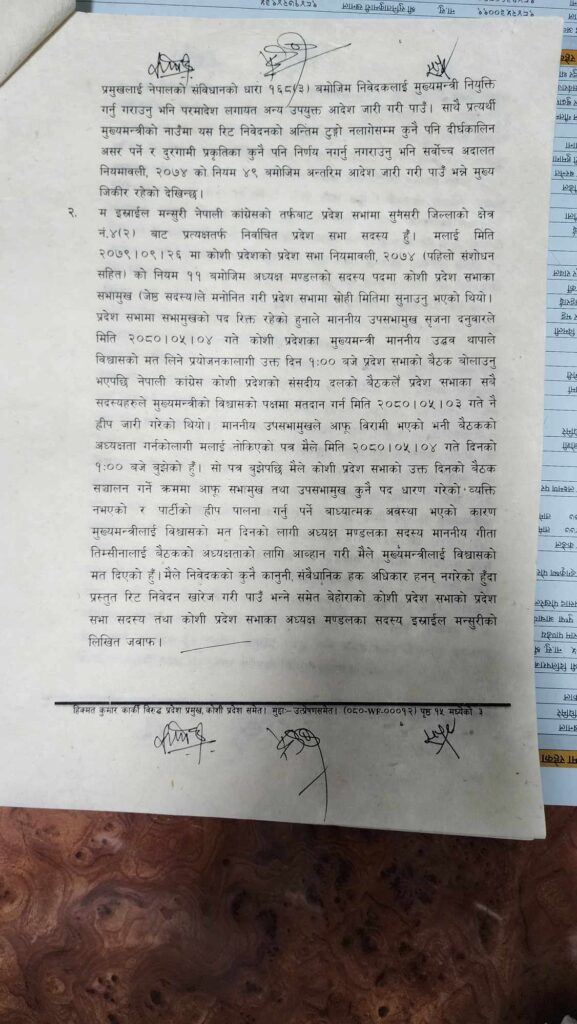 प्रमुखलाई नेपालको संविधानको धारा १६८(३) बमोजिम निवेदकलाई मुख्यमन्त्री नियुक्ति
गर्नु गराउनु भनि परमादेश लगायत अन्य उपयुक्त आदेश जारी गरी पाउँ। साथै प्रत्यर्थी
मुख्यमन्त्रीको नाउँमा यस रिट निवेदनको अन्तिम टुङ्गो नलागेसम्म कुनै पनि दीर्घकालिन
असर पर्ने र दुरगामी प्रकृतिका कुनै पनि निर्णय नगर्नु नगराउनु भनि सर्वोच्च अदालत
नियमावली, २०७४ को नियम ४९ बमोजिम अन्तरिम आदेश जारी गरी पाउँ भन्ने मुख्य
जिकीर रहेको देखिन्छ।
२. म इस्राईल मन्सुरी नेपाली कांग्रेसको तर्फबाट प्रदेश सभामा सुनसरी जिल्लाको क्षेत्र
नं.४(२) बाट प्रत्यक्षतर्फ निर्वाचित प्रदेश सभा सदस्य हुँ। मलाई मिति
२०७९।०९।२६ मा कोशी प्रदेशको प्रदेश सभा नियमावली, २०७४ (पहिलो संशोधन
सहित) को नियम ११ बमोजिम अध्यक्ष मण्डलको सदस्य पदमा कोशी प्रदेश सभाका
सभामुख (जेष्ठ सदस्य)ले मनोनित गरी प्रदेश सभामा सोही मितिमा सुनाउनु भएको थियो।
प्रदेश सभामा सभामुखको पद रिक्त रहेको हुनाले माननीय उपसभामुख सृजना दनुवारले
मिति २०८०।०५।०४ गते कोशी प्रदेशका मुख्यमन्त्री माननीय उद्धव थापाले
विश्वासको मत लिने प्रयोजनकालागी उक्त दिन १:०० बजे प्रदेश सभाको बैठक बोलाउनु
भएपछि नेपाली कांग्रेस कोशी प्रदेशको संसदीय दलको बैठकले प्रदेश सभाका सबै
सदस्यहरुले मुख्यमन्त्रीको विश्वासको पक्षमा मतदान गर्न मिति २०८०।०५।०३ गते नै
ह्वीप जारी गरेको थियो। माननीय उपसभामुखले आफू विरामी भएको भनी बैठकको
अध्यक्षता गर्नकोलागी मलाई तोकिएको पत्र मैले मिति २०८०।०५।०४ गते दिनको
१:०० बजे बुझेको हुँ। सो पत्र बुझेपछि मैले कोशी प्रदेश सभाको उक्त दिनको बैठक
सञ्चालन गर्ने क्रममा आफू सभामुख तथा उपसभामुख कुनै पद धारण गरेको व्यक्ति
नभएको र पार्टीको ह्वीप पालना गर्नु पर्ने बाध्यात्मक अवस्था भएको कारण
मुख्यमन्त्रीलाई विश्वासको मत दिनको लागी अध्यक्ष मण्डलका सदस्य माननीय गीता
तिम्सीनालाई बैठकको अध्यक्षताको लागि आव्हान गरी मैले मुख्यमन्त्रीलाई विश्वासको
मत दिएको हुँ। मैले निवेदकको कुनै कानुनी, संवैधानिक हक अधिकार हनन् नगरेको हुँदा
प्रस्तुत रिट निवेदन खारेज गरी पाउँ भन्ने समेत बेहोराको कोशी प्रदेश सभाको प्रदेश
सभा सदस्य तथा कोशी प्रदेश सभाका अध्यक्ष मण्डलका सदस्य इस्राईल मन्सुरीको
लिखित जवाफ।
हिक्मत कुमार कार्की विरुद्ध प्रदेश प्रमुख, कोशी प्रदेश समेत। मुद्दाः- उत्प्रेषणसमेत। (०८०-WF-०००१२) पृष्ठ १५ मध्येको ३